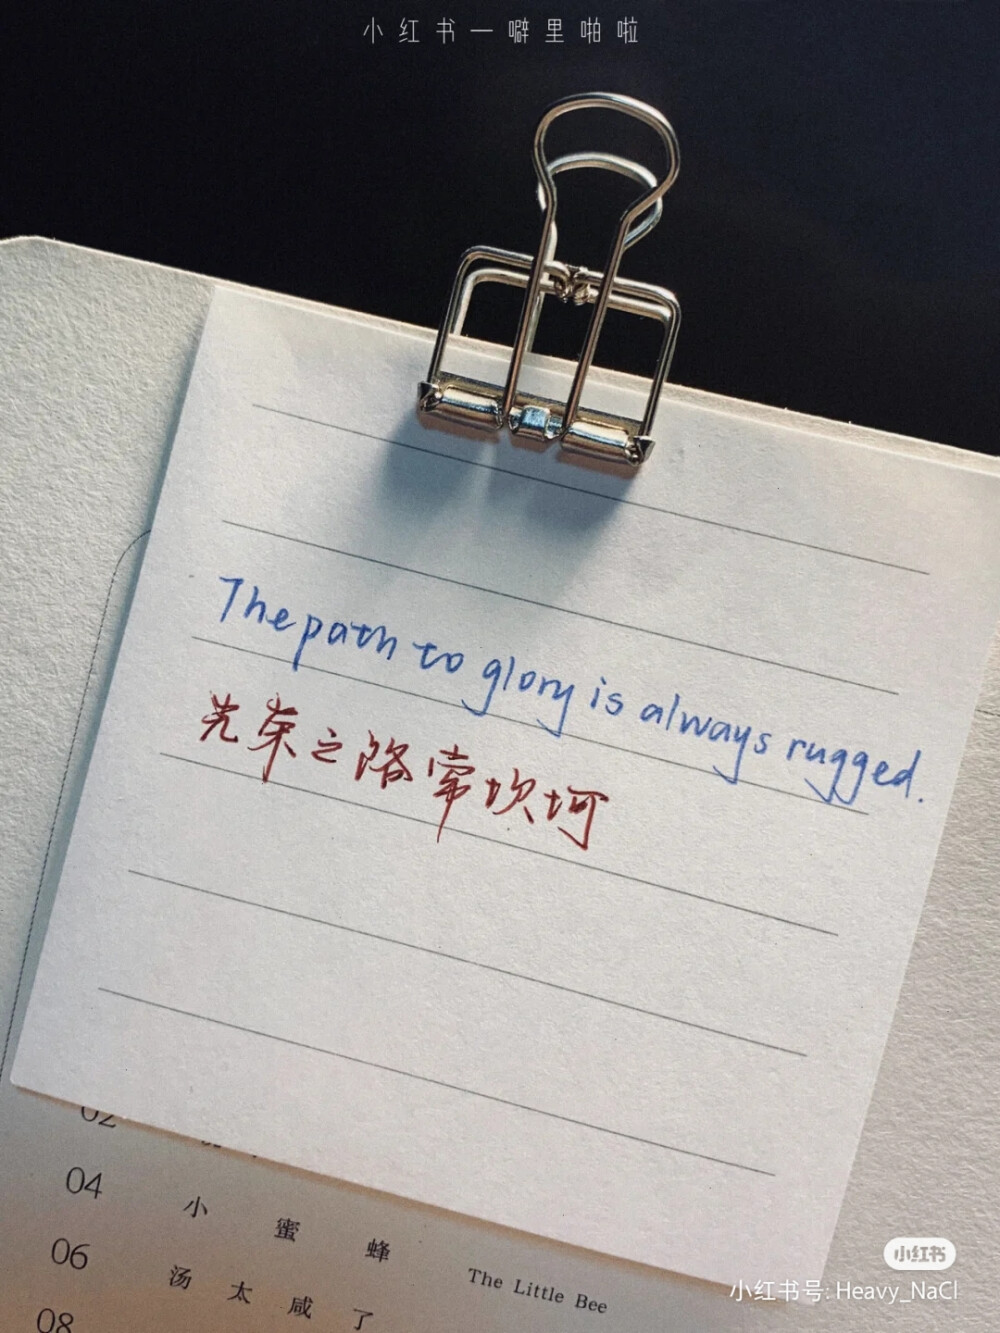 小红书一噼里啪啦
The path to glory is always rugged.
光荣之路常坎坷
02
04 小蜜蜂 The Little Bee
06 汤太咸了
08
小红书
小红书号: Heavy_NaCl